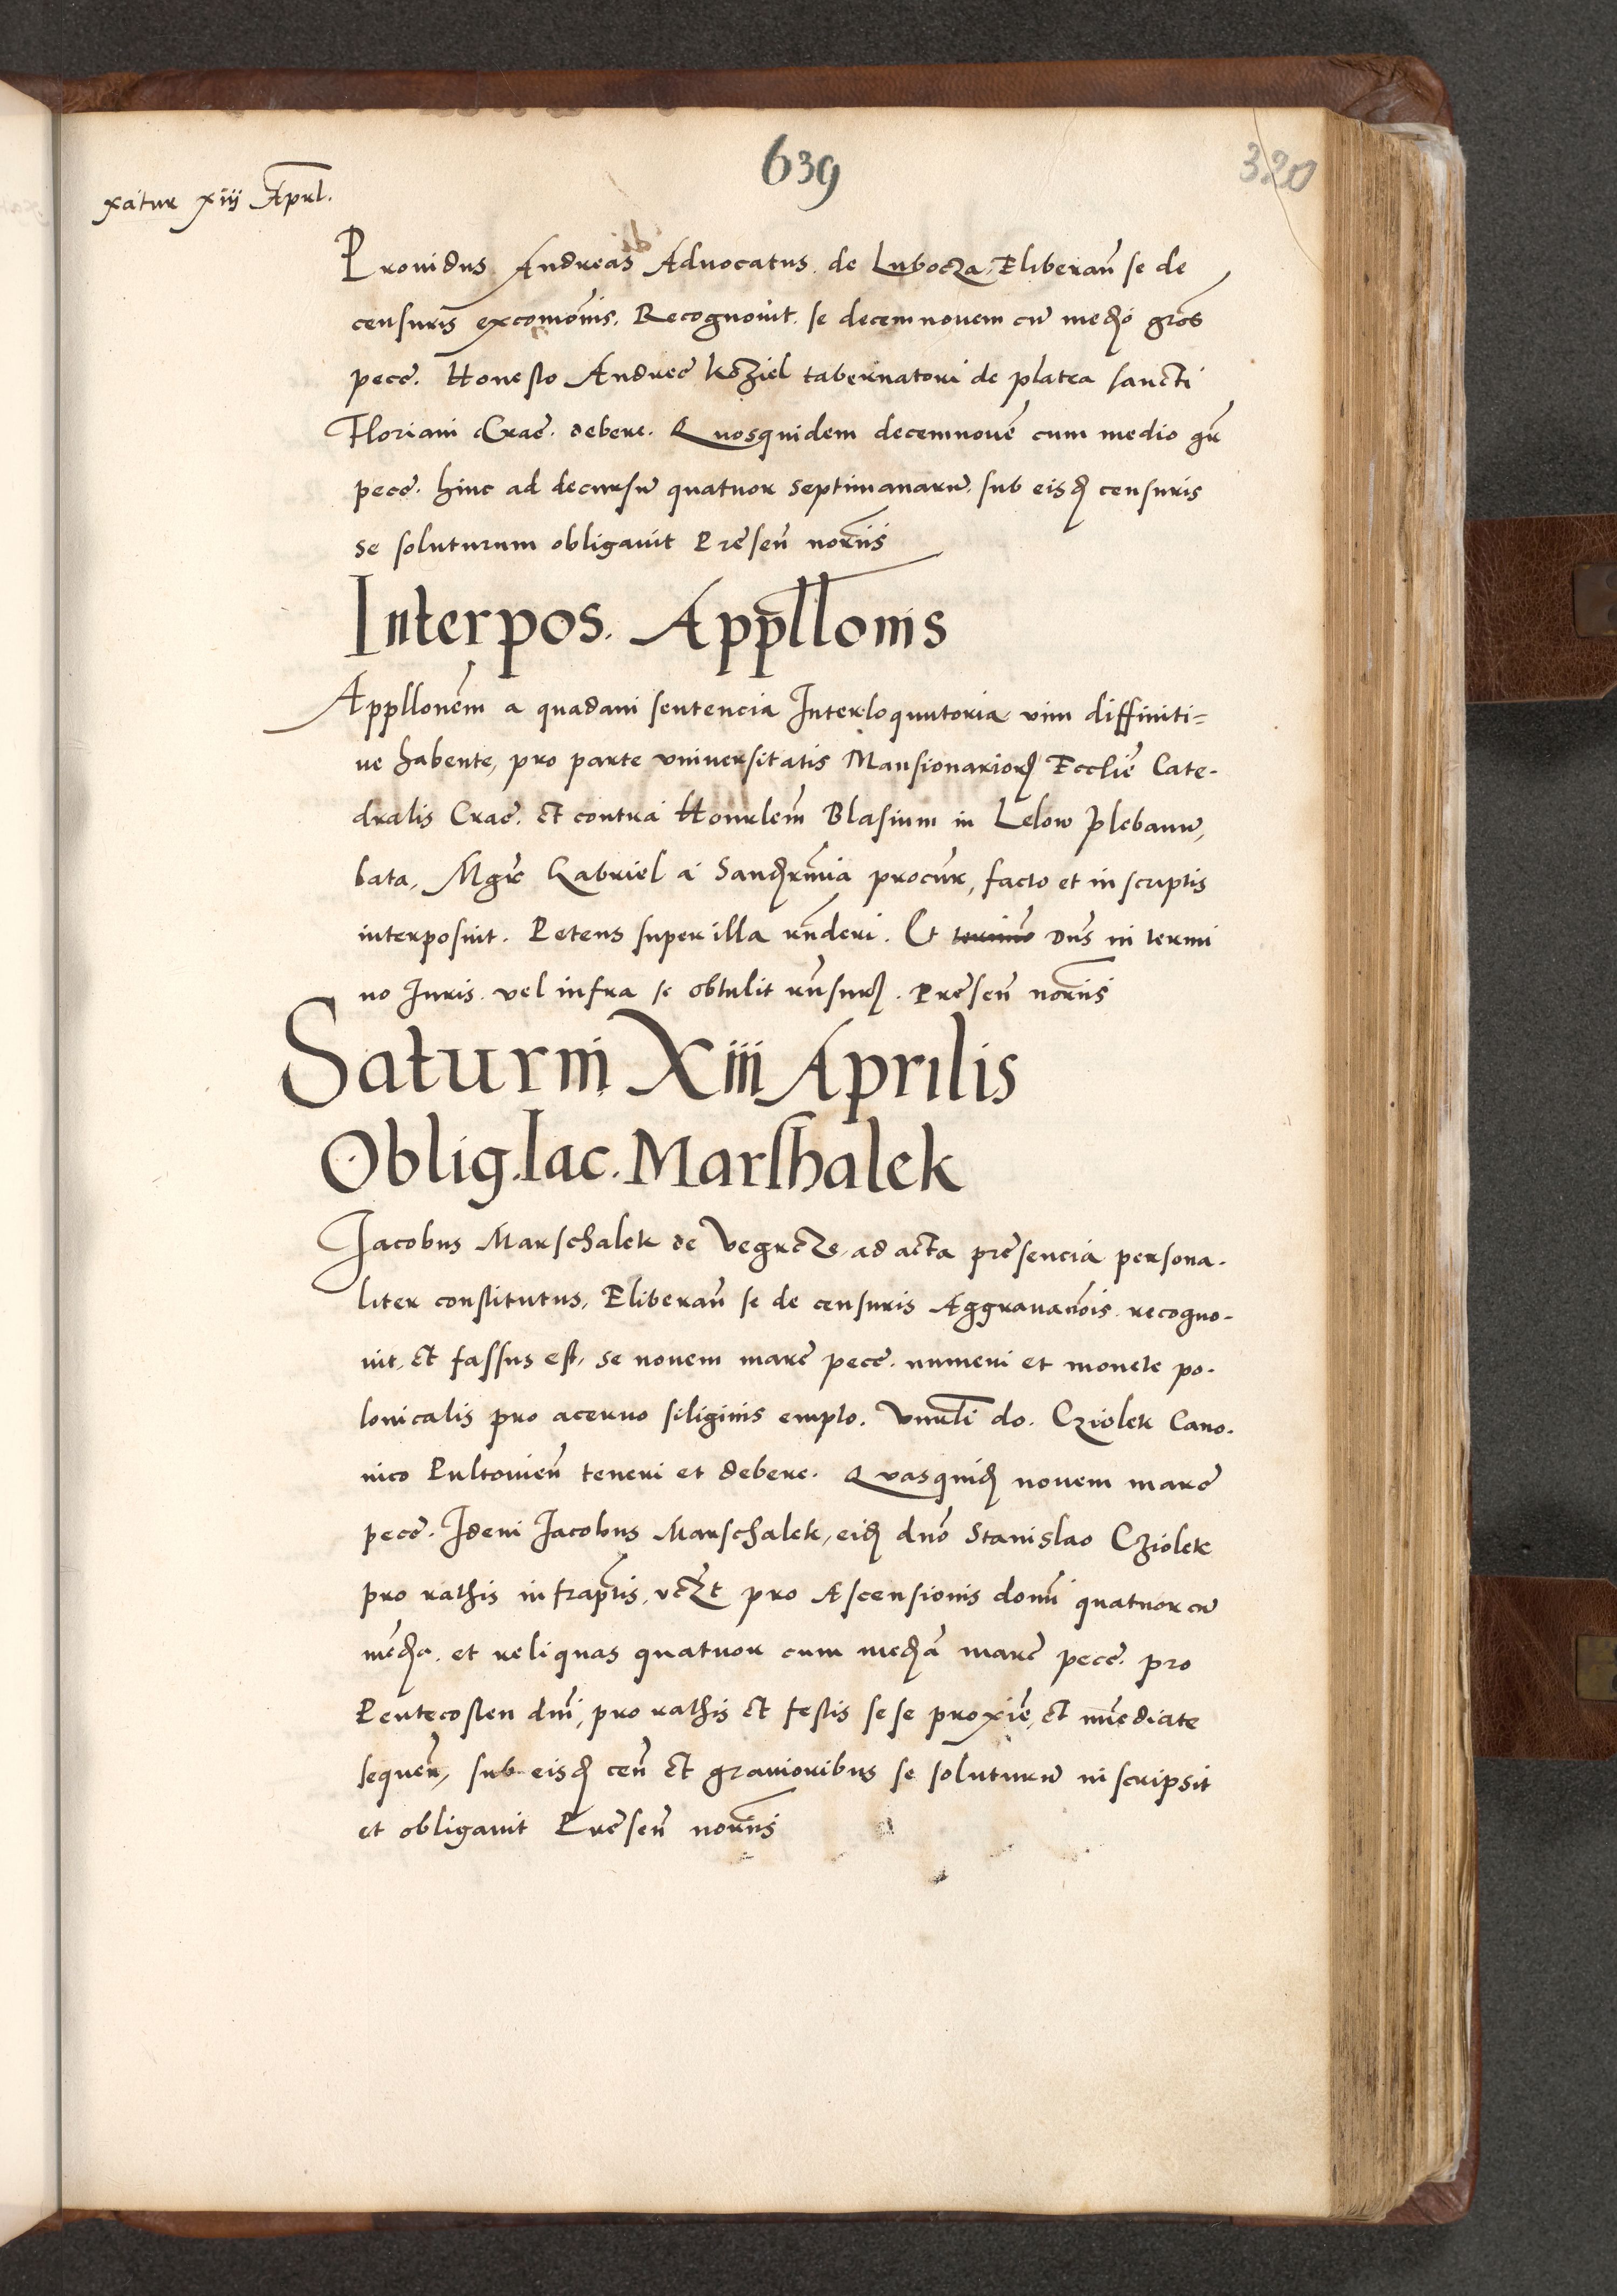 639
320
xatur xiij Aprl.
Prouidus Andreas Aduocatus de Lubocza, Eliberan̄ se de
censuris excomo͞nis. Recognouit se decem nouem cu͞ medio gros
pecc̄. Honesto Andree Koziel tabernatori de platea sancti
Floriani Crac̄. debere. Quosquidem decemnoue͞ cum medio gr̄
pecc̄. hinc ad decursu͞ quatuor septimanaru͞ sub eisd̄ censuris
se soluturum obligauit Presen̄ nor͞iis
Interpos. Appll͞onis
Appllone͞m a quadam sentencia Interloquutoria vim diffiniti=
ue habente, pro parte vniuersitatis Mansionarior̄ Eccli͞e Cate-
dralis Crac̄. et contra Honrle͞m Blasium in Lelow Plebanu͞,
bata, Mgr̄ Gabriel a Sand̄rmia procur̄, facto et in scriptis
interposuit. Petens super illa rn͞deri. Et Dn͞s in termi
no Iuris vel infra se obtulit rn͞sur̄. Presen̄ nor͞iis
Saturni Xiii Aprilis
Oblig. Iac. Marshalek
Jacobus Marschalek de Vegrcze, ad acta presencia persona-
liter constitutus, Eliberan̄ se de censuris Aggrauano͞is recogno-
uit, et fassus est, se nouem marc̄ pecc̄. numeri et monete po-
lonicalis pro aceruo siliginis empto. Vnrl͞i do. Cziolek Cano-
nico Pultouien̄ teneri et debere. Quasquid̄ nouem marc̄
pecc̄. Idem Jacobus Marschalek, eid̄ dn͞o Stanislao Cziolek
pro rathis infrapt͞is, vczt pro Ascensionis dom͞i quatuor cu͞
med̄a. et reliquas quatuor cum med̄a marc̄ pecc̄. pro
Pentecosten dn͞i, pro rathis et festis sese proxi͞e, et im͞ediate
sequen̄, sub eisd̄ cen̄ et grauioribus se soluturu͞ inscripsit
et obligauit Presen̄ nor͞iis